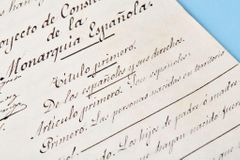 royecto de Consti
de la
Monarquía Española.
Título primero.
De los españoles y sus derechos.
Artículo primero. Son españoles.
Primero. Las personas nacidas en territorio
Los hijos de padre ó madre
que hayan